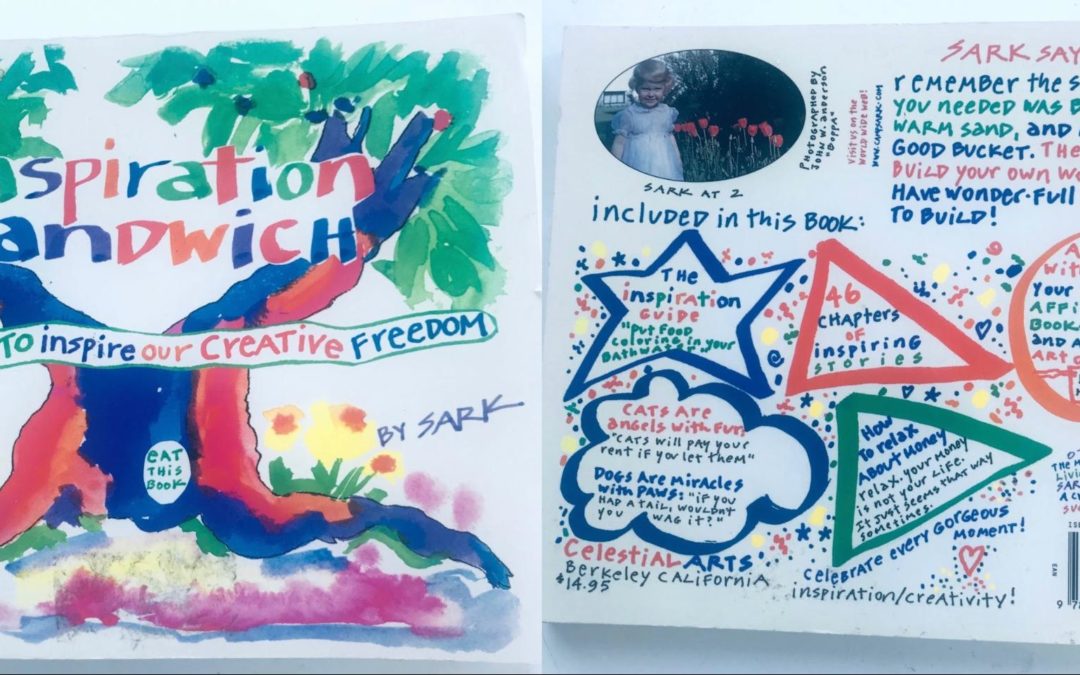 nspiration
andwich
TO inspire our Creative FREEDOM
BY SARK
EAT
THIS
BOOK
PHOTOGRAPHED BY
JOHN W. anderson
"Boppa"
Visit us on the
World Wide Web!
www.campsark.com
SARK AT 2
SARK SAY
remember the s
you needed was B
warm sand, and
good bucket. The
Build your own w
Have wonder-full
to build!
included in this Book:
The
inspiration
Guide
"Put food
coloring in your
46
CHAPTERS
of
inspiring
stories
A
With
your
Affi
Book
and A
ART
Cats are
angels with fur:
"Cats will pay your
rent if you let them"
Dogs are miracles
with paws: "if you
had a tail, wouldn't
you wag it?"
How
to relax
about money
relax. your money
is not your life.
It just seems that way
sometimes.
Celebrate every gorgeous
moment!
Celestial Arts
Berkeley California
$14.95
inspiration/creativity!
The M
Livin
SAR
A C
Su
ISB
EAN
9 78